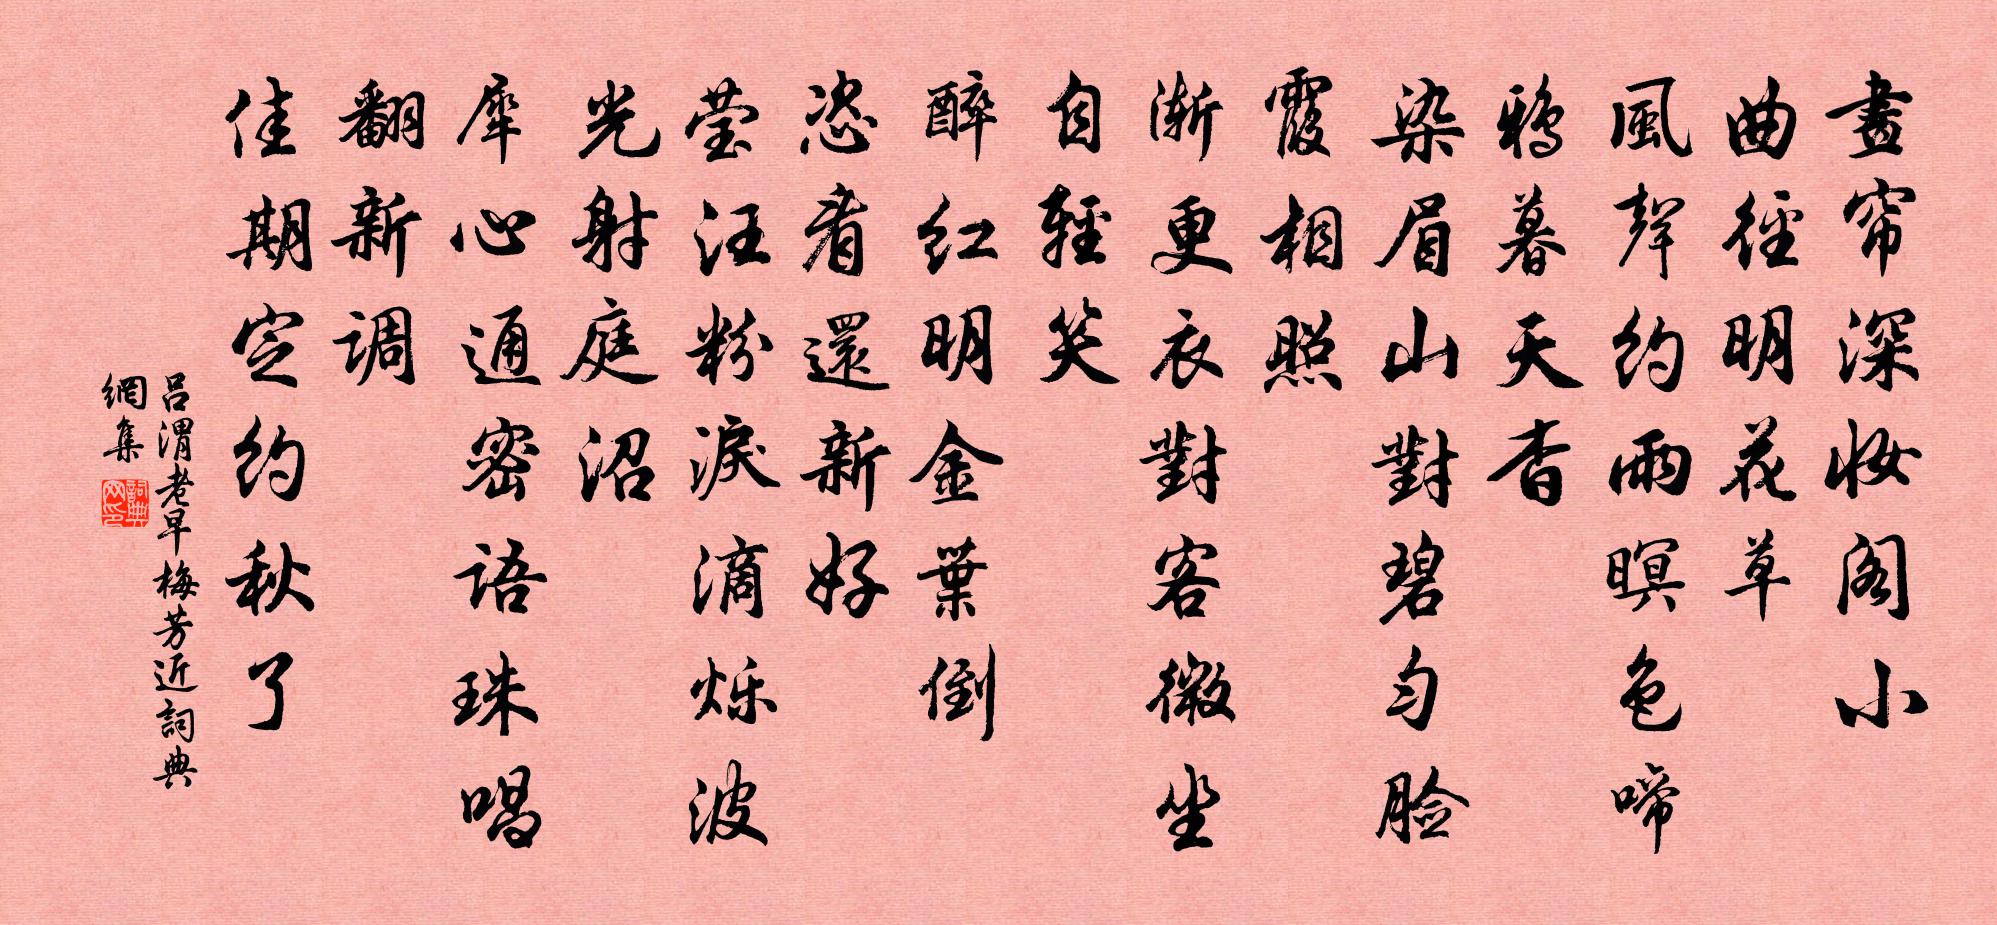 畫帘深妝阁小
曲徑明花草
風聲约雨暝色啼
鴉暮天杳
染眉山對碧匀脸
霞相照
渐更衣對客微坐
自輕笑
醉红明金葉倒
恣看還新好
莹汪粉淚滴烁波
光射庭沼
犀心通密语珠唱
翻新调
佳期定约秋了
吕渭老早梅芳近詞典
網集
詞典
网印